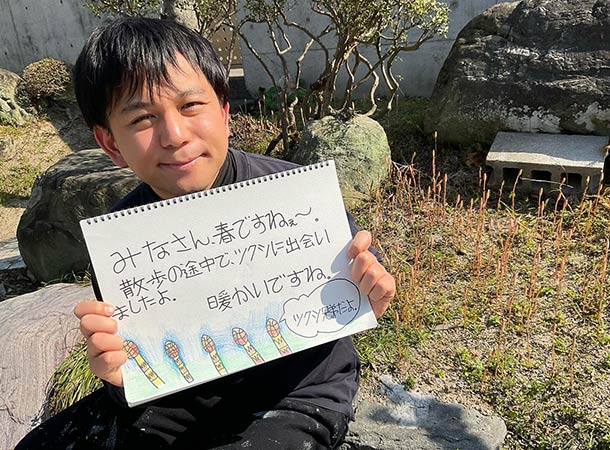 みなさん、春ですねぇ〜。
散歩の途中で、ツクシに出会い
ましたよ。 暖かいですね。
ツクシ兄弟だよ。